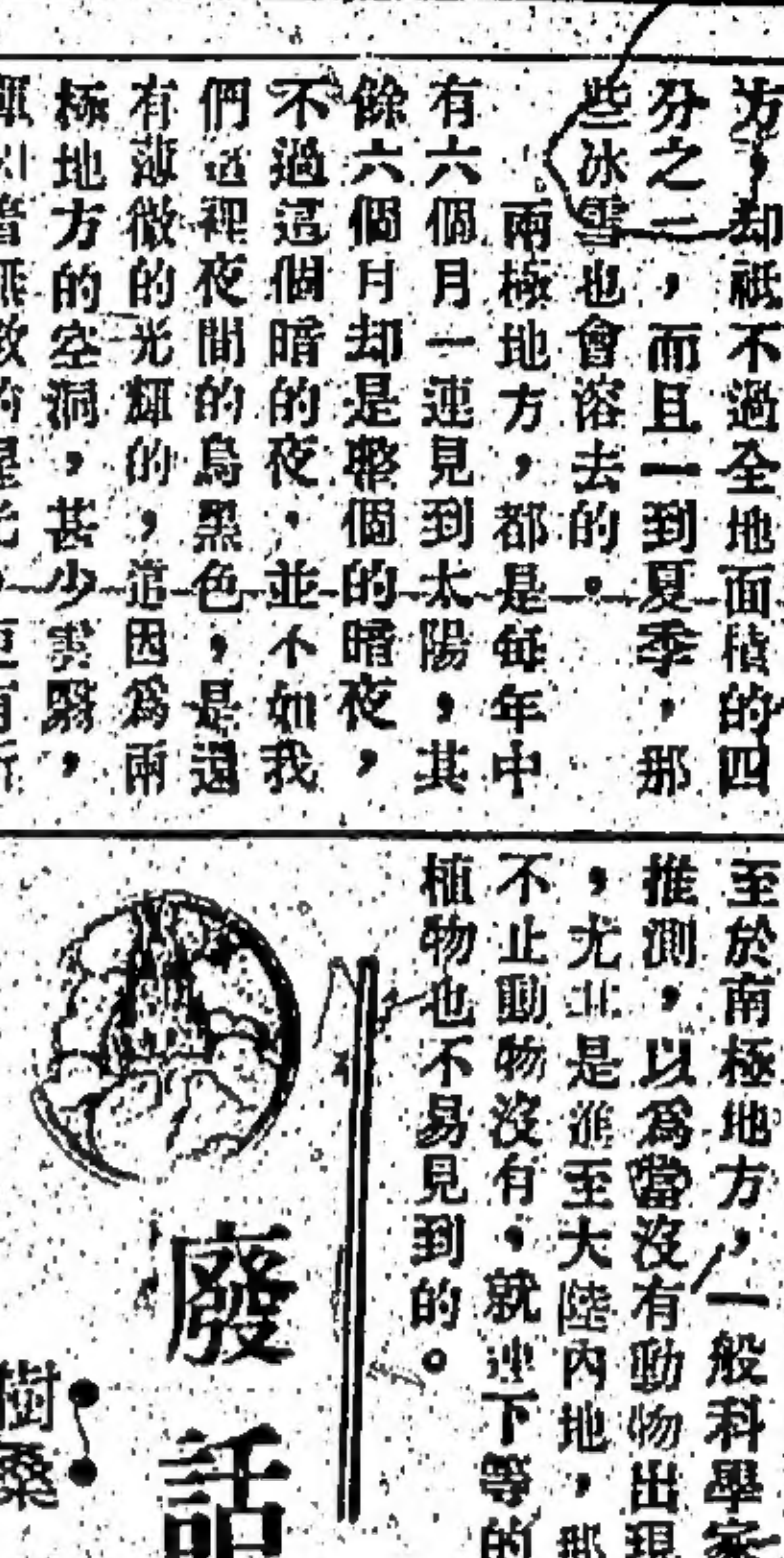 方，却祇不過全地面積的四
分之一，而且一到夏季，那
些冰雪也會溶去的。
兩極地方，都是每年中
有六個月一連見到太陽，其
餘六個月却是整個的暗夜，
不過這個暗的夜，並不如我
們這裡夜間的烏黑色，是還
有薄微的光輝的，這因爲兩
極地方的空洞，甚少雲翳，
無數的星光，更有
至於南極地方，一般科學家
推測，以爲當沒有動物出現
，尤其是進至大陸內地，那
不止動物沒有，就連下等的
植物也不易見到的。
廢話
樹桑